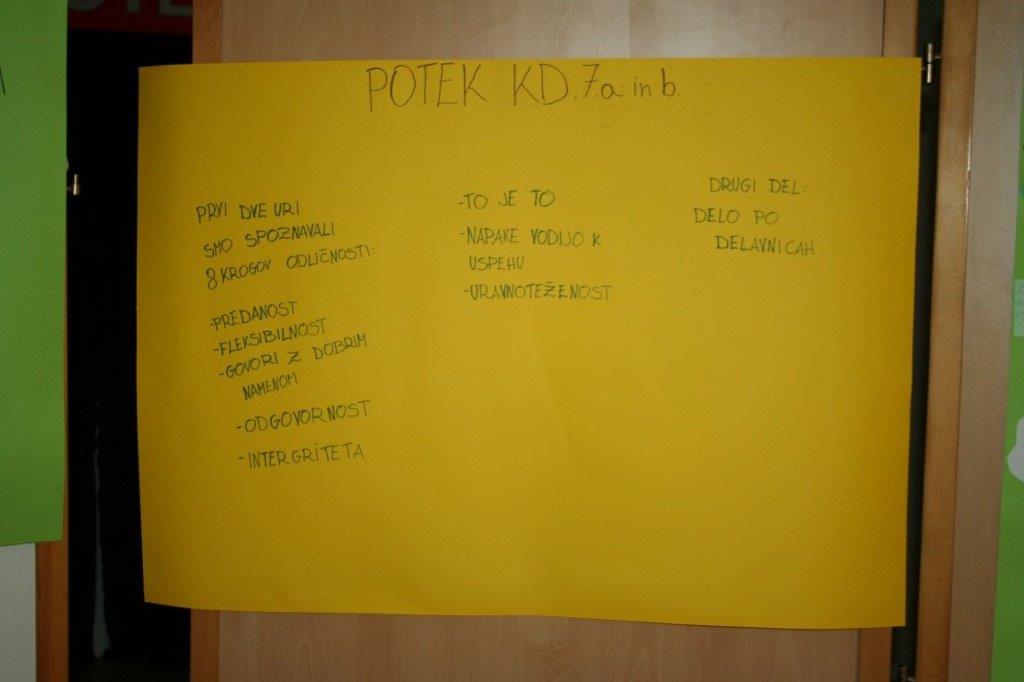 POTEK KD. 7.a in b.
PRVI DVE URI
SMO SPOZNAVALI
8 KROGOV ODLIČNOSTI:
-PREDANOST
-FLEKSIBILNOST
-GOVORI Z DOBRIM
NAMENOM
-ODGOVORNOST
-INTERGRITETA
-TO JE TO
-NAPAKE VODIJO K
USPEHU
-URAVNOTEŽENOST
DRUGI DEL:
DELO PO
DELAVNICAH